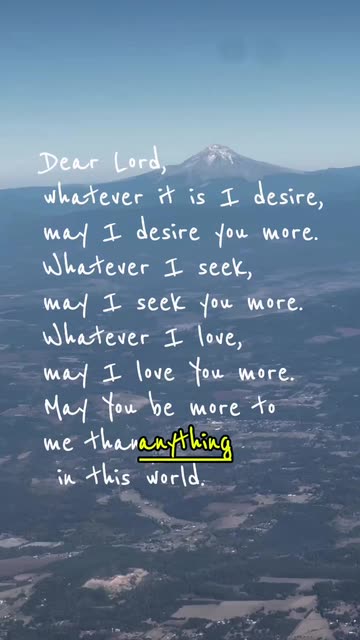 Dear Lord,
whatever it is I desire,
may I desire you more.
Whatever I seek,
may I seek you more.
Whatever I love,
may I love you more.
May you be more to
me than anything
in this world.